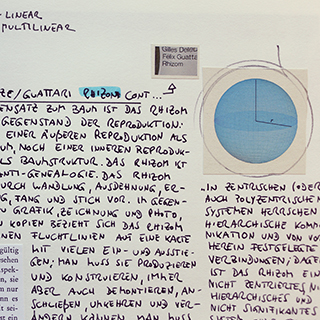 - LINEAR
MULTILINEAR
Gilles Deleu
Félix Guatta
Rhizom
ZE/GUATTARI RHIZOM CONT...
ENSATZ ZUM BAUM IST DAS RHIZOM
GEGENSTAND DER REPRODUKTION.
EINER ÄUßEREN REPRODUKTION ALS
UM, NOCH EINER INNEREN REPRODUK-
LS BAUMSTRUKTUR. DAS RHIZOM IST
NTI-GENEALOGIE. DAS RHIZOM
URCH WANDLUNG, AUSDEHNUNG, ER-
G, FANG UND STICH VOR. IM GEGEN-
GRAFIK, ZEICHNUNG UND PHOTO,
KOPIEN BEZIEHT SICH DAS RHIZOM
NEN FLUCHTLINIEN AUF EINE KARTE
MIT VIELEN EIN- UND AUSSTIE-
GEN; MAN MUSS SIE PRODUZIEREN
UND KONSTRUIEREN, IMMER
ABER AUCH DEMONTIEREN, AN-
SCHLIEßEN, UMKEHREN UND VER-
ÄNDERN KÖNNEN. MAN MUSS
r
..IN ZENTRISCHEN (ODER
AUCH POLYZENTRISCHEN
SYSTEMEN HERRSCHEN
HIERARCHISCHE KOMM
NIKATION UND VON VO
HEREIN FESTGELEGTE
VERBINDUNGEN; DAGE
IST DAS RHIZOM EIN
NICHT ZENTRIERTES, NI
HIERARCHISCHES UND
NICHT SIGNIFIKANTES
gültig
esehen
spek-
n, sie
nur
enn es
t sei-
ist ein